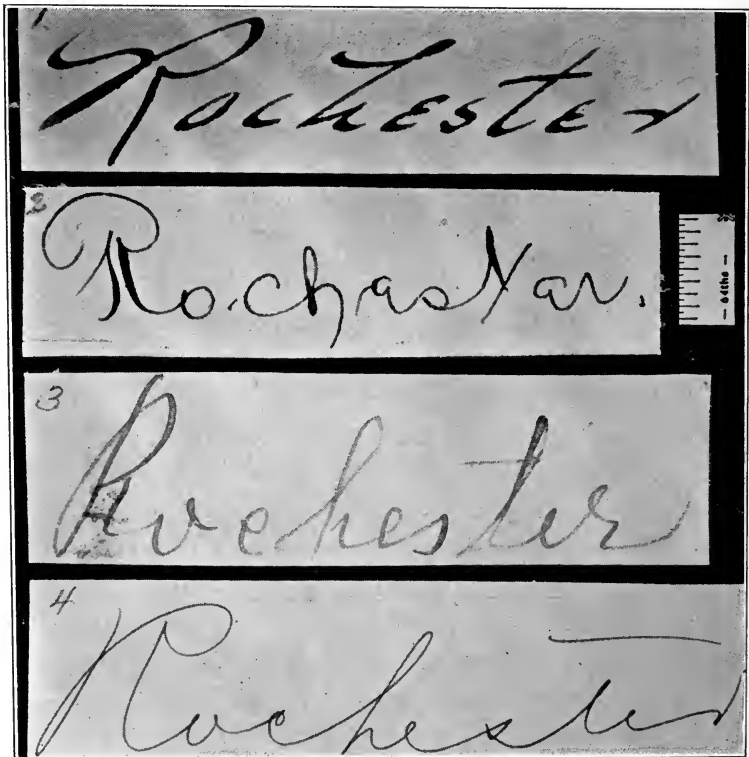 1
Rochester
2
Rochastar.
64ths
3
Rochester
4
Rochester